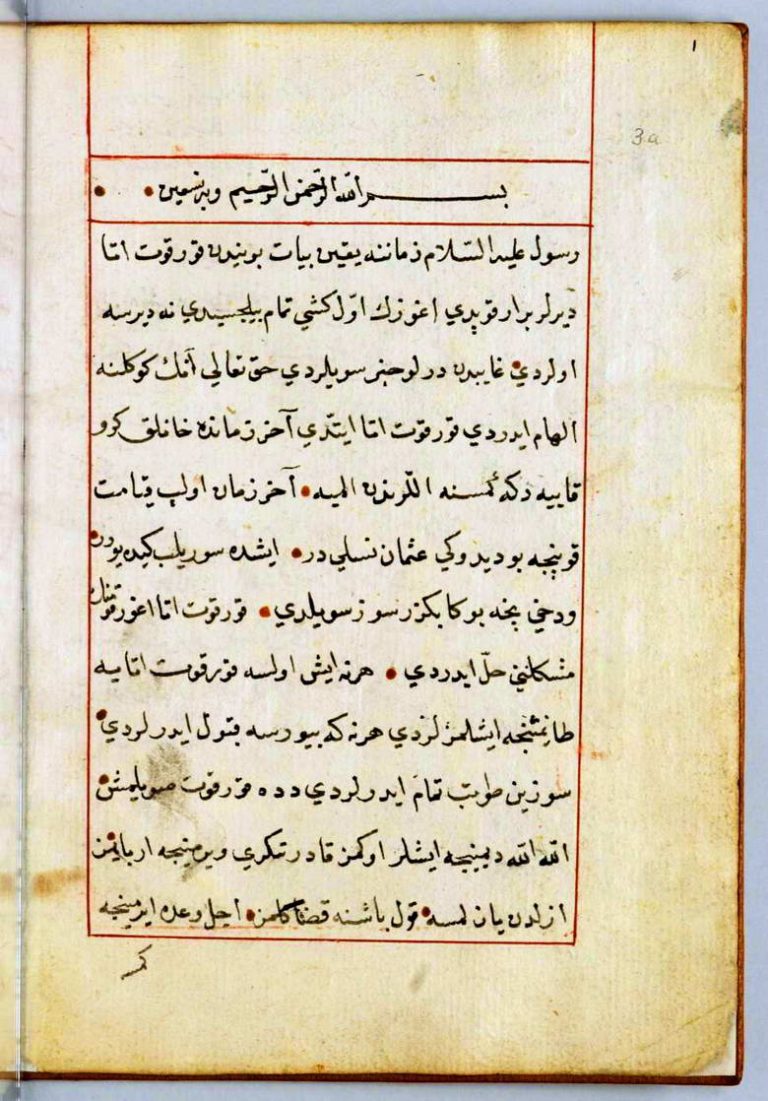 ١
3a
بسم الله الرحمن الرحيم وبه نستعين
رسول عليه السلام زماننه يقين بيات بويندن قورقوت اتا
ديرلر بر ار قوپدي اغوزك اول كشي تمام بيلجيسيدي نه ديرسه
اولردي غايبدن درلو خبر سويلردي حق تعالي آنك كوكلنه
الهام ايدردي قورقوت اتا ايتدي آخر زمانده خانلق كرو
قاييه دكه كمسنه اللرندن الميه آخر زمان اولب قيامت
قوپنجه بو ديدوكي عثمان نسلي در ايشده سوريلب كيده يورر
ودخي نچه بوكا بكزر سوز سويلدي قورقوت اتا اغوز قومنك
مشكلني حل ايدردي هر نه ايش اولسه قورقوت اتايه
طانشمنجه ايشلمزلردي هر نه كه بيورسه قبول ايدرلردي
سوزين طوتب تمام ايدرلردي دده قورقوت سويلمش
الله الله ديمينجه ايشلر اوكمز قادر تكري ويرمينجه ار بايمز
ازلدن يازلمسه قول باشنه قضا كلمز اجل وعده ايرمينجه
كمسه